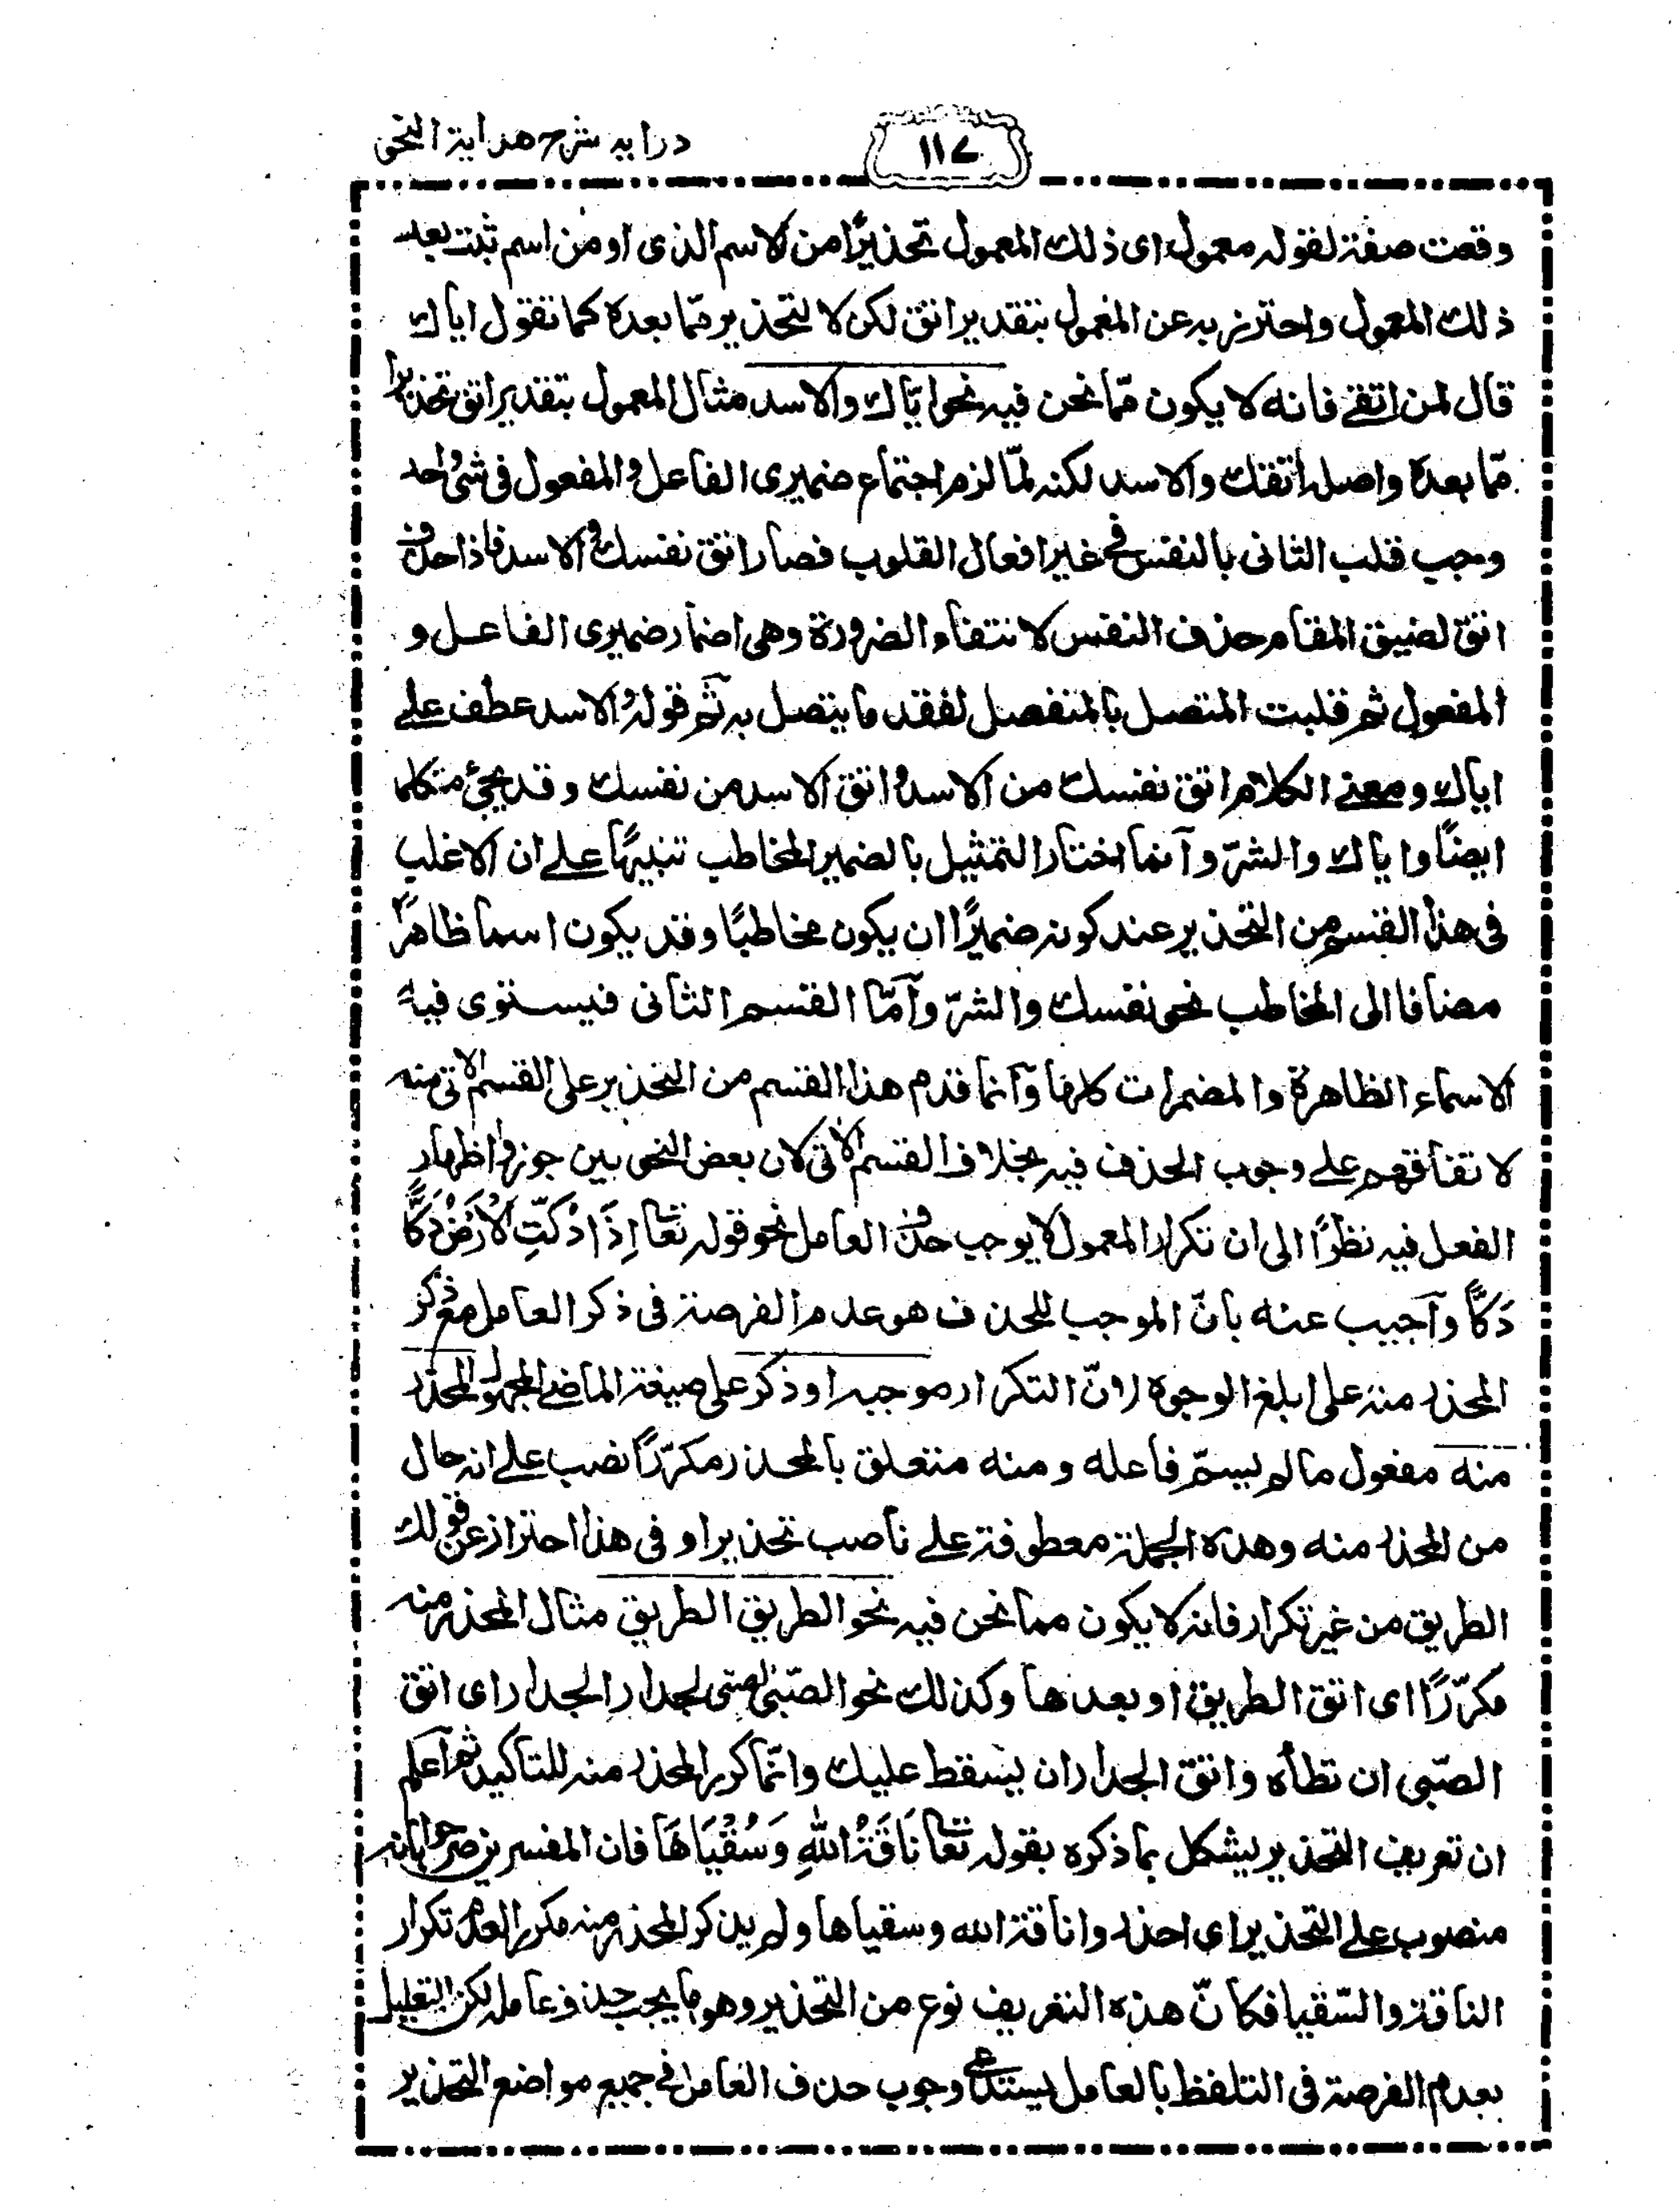 درايه شرح هداية النحو
١١٧
وقعت صفة لقوله معمول اى ذلك المعمول تحذيرًا من الاسم الذى او من اسم ثبت بعد
ذلك المعمول واحترز به عن المعمول بتقدير اتق لكن لا لتحذير ممّا بعده كما تقول اياك
قال لمن اتقے فانه لا يكون ممّا نحن فيه نحو ايّاك والاسد مثال المعمول بتقدير اتق تحذيرا
ممّا بعده واصله اتقك والاسد لكنه لمّا لزم اجتماع ضميرى الفاعل والمفعول فى شئ واحد
وجب قلب الثانى بالنفس فے غير افعال القلوب فصار اتق نفسك والاسد فاذا حذف
اتق لضيق المقام حذف النفس لانتفاء الضرورة وهى اضمار ضميرى الفاعل و
المفعول ثم قلبت المتصل بالمنفصل لفقد ما يتصل به ثم قوله والاسد عطف علے
اياك ومعنے الكلام اتق نفسك من الاسد واتق الاسد من نفسك وقد يجئ متكلما
ايضًا واياك والشرّ وانما اختار التمثيل بالضمير المخاطب تنبيهًا علے ان الاغلب
فى هذا القسم من التحذير عند كونه ضميرًا ان يكون مخاطبًا وقد يكون اسما ظاهرًا
مضافا الى المخاطب نحو نفسك والشرّ وآمّا القسم الثانى فيستوى فيه
الاسماء الظاهرة والمضمرات كلها وآنما قدم هذا القسم من التحذير على القسم الاتى منه
لاتفاقهم علے وجوب الحذف فيه بخلاف القسم الاتى لان بعض النحويين جوزوا اظهار
الفعل فيه نظرًا الى ان تكرار المعمول لا يوجب حذف العامل نحو قوله تعا اِذَا دُكَّتِ الْاَرْضُ دَكًّا
دَكًّا وآجيب عنه بانّ الموجب للحذف هو عدم الفرصة فى ذكر العامل مع ذكر
المحذر منه على ابلغ الوجوه لا انّ التكرار موجبه او ذكر على صيغة الماضى المجهول المحذر
منه مفعول ما لم يسمّ فاعله ومنه متعلق بالمحذر مكرّرًا نصب علے انه حال
من المحذر منه وهذه الجملة معطوفة علے ناصب تحذيرا و فى هذا احتراز عن قولك
الطريق من غير تكرار فانه لا يكون مما نحن فيه نحو الطريق الطريق مثال المحذر منه
مكرّرًا اى اتق الطريق او بعدها وكذلك نحو الصّبى الصبى الجدار الجدار اى اتق
الصّبى ان تطأه واتق الجدار ان يسقط عليك وانّما كرر المحذر منه للتاكيد ثم آعلم
ان تعريف التحذير يشكل بما ذكره بقوله تعا نَاقَةُ اللهِ وَسُقْيَاهَا فان المفسرين صرحوا بانه
منصوب علے التحذير اى احذروا ناقة الله وسقياها ولم يذكر المحذر منه مكررا لعدم تكرار
الناقة والسّقيا فكانّ هذه التعريف نوع من التحذير وهو ما يجب حذف عامله لكن التعليل
بعدم الفرصة فى التلفظ بالعامل يستدعے وجوب حذف العامل فے جميع مواضع التحذير